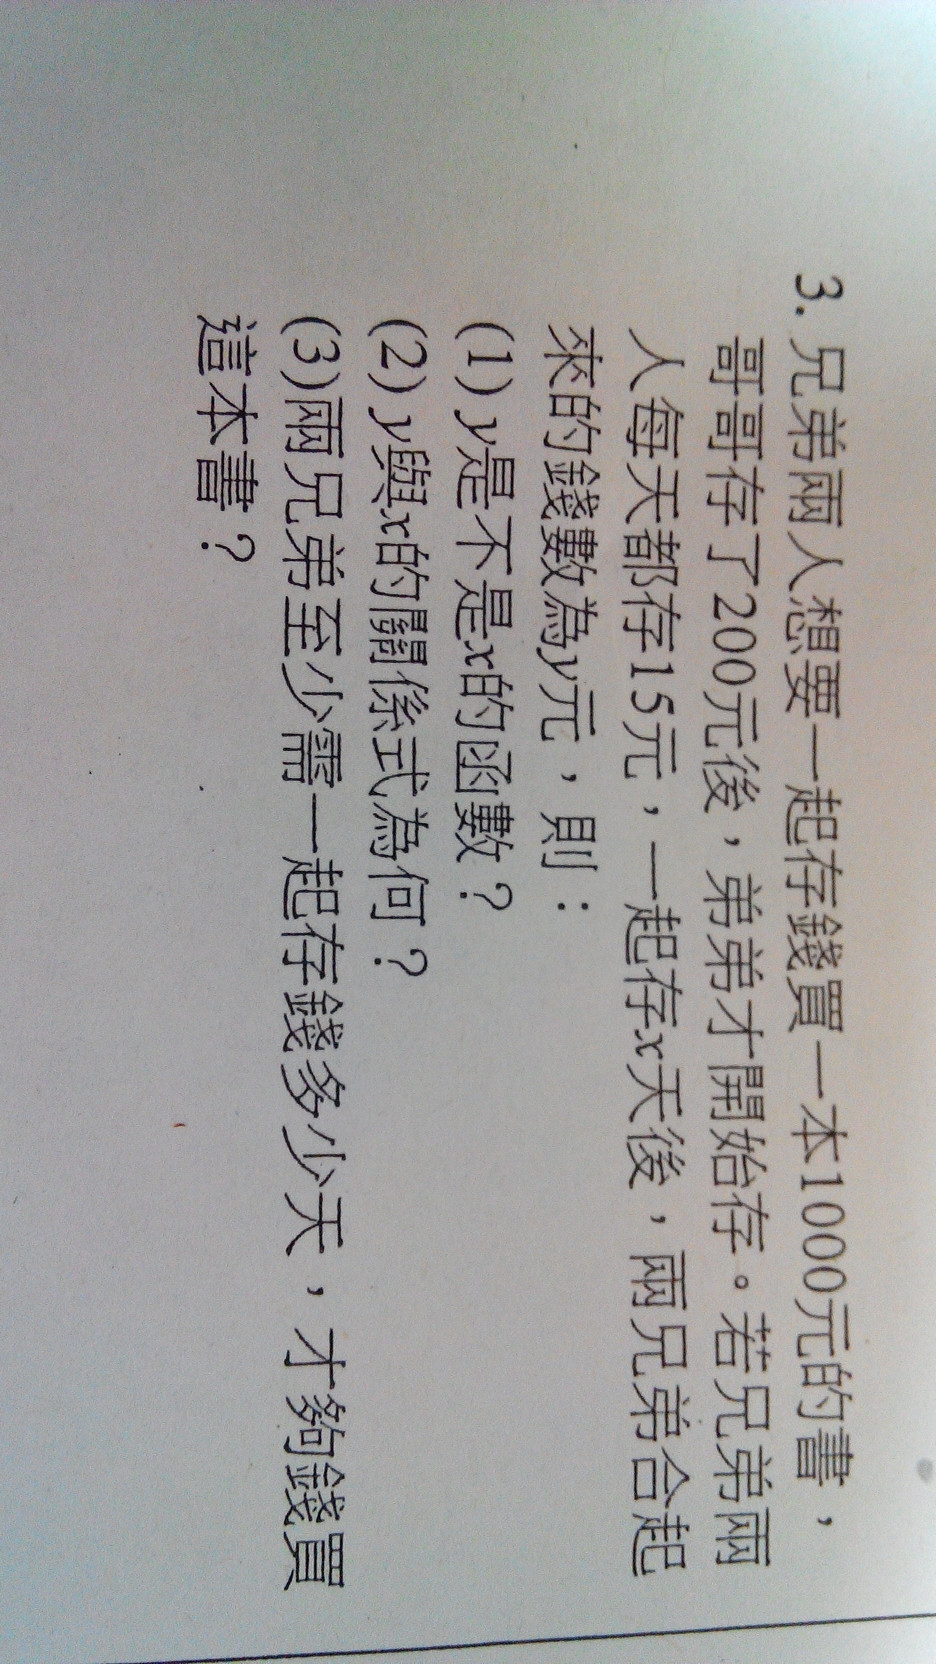 3. 兄弟兩人想要一起存錢買一本1000元的書，
哥哥存了200元後，弟弟才開始存。若兄弟兩
人每天都存15元，一起存x天後，兩兄弟合起
來的錢數為y元，則：
(1) y是不是x的函數？
(2) y與x的關係式為何？
(3)兩兄弟至少需一起存錢多少天，才夠錢買
這本書？